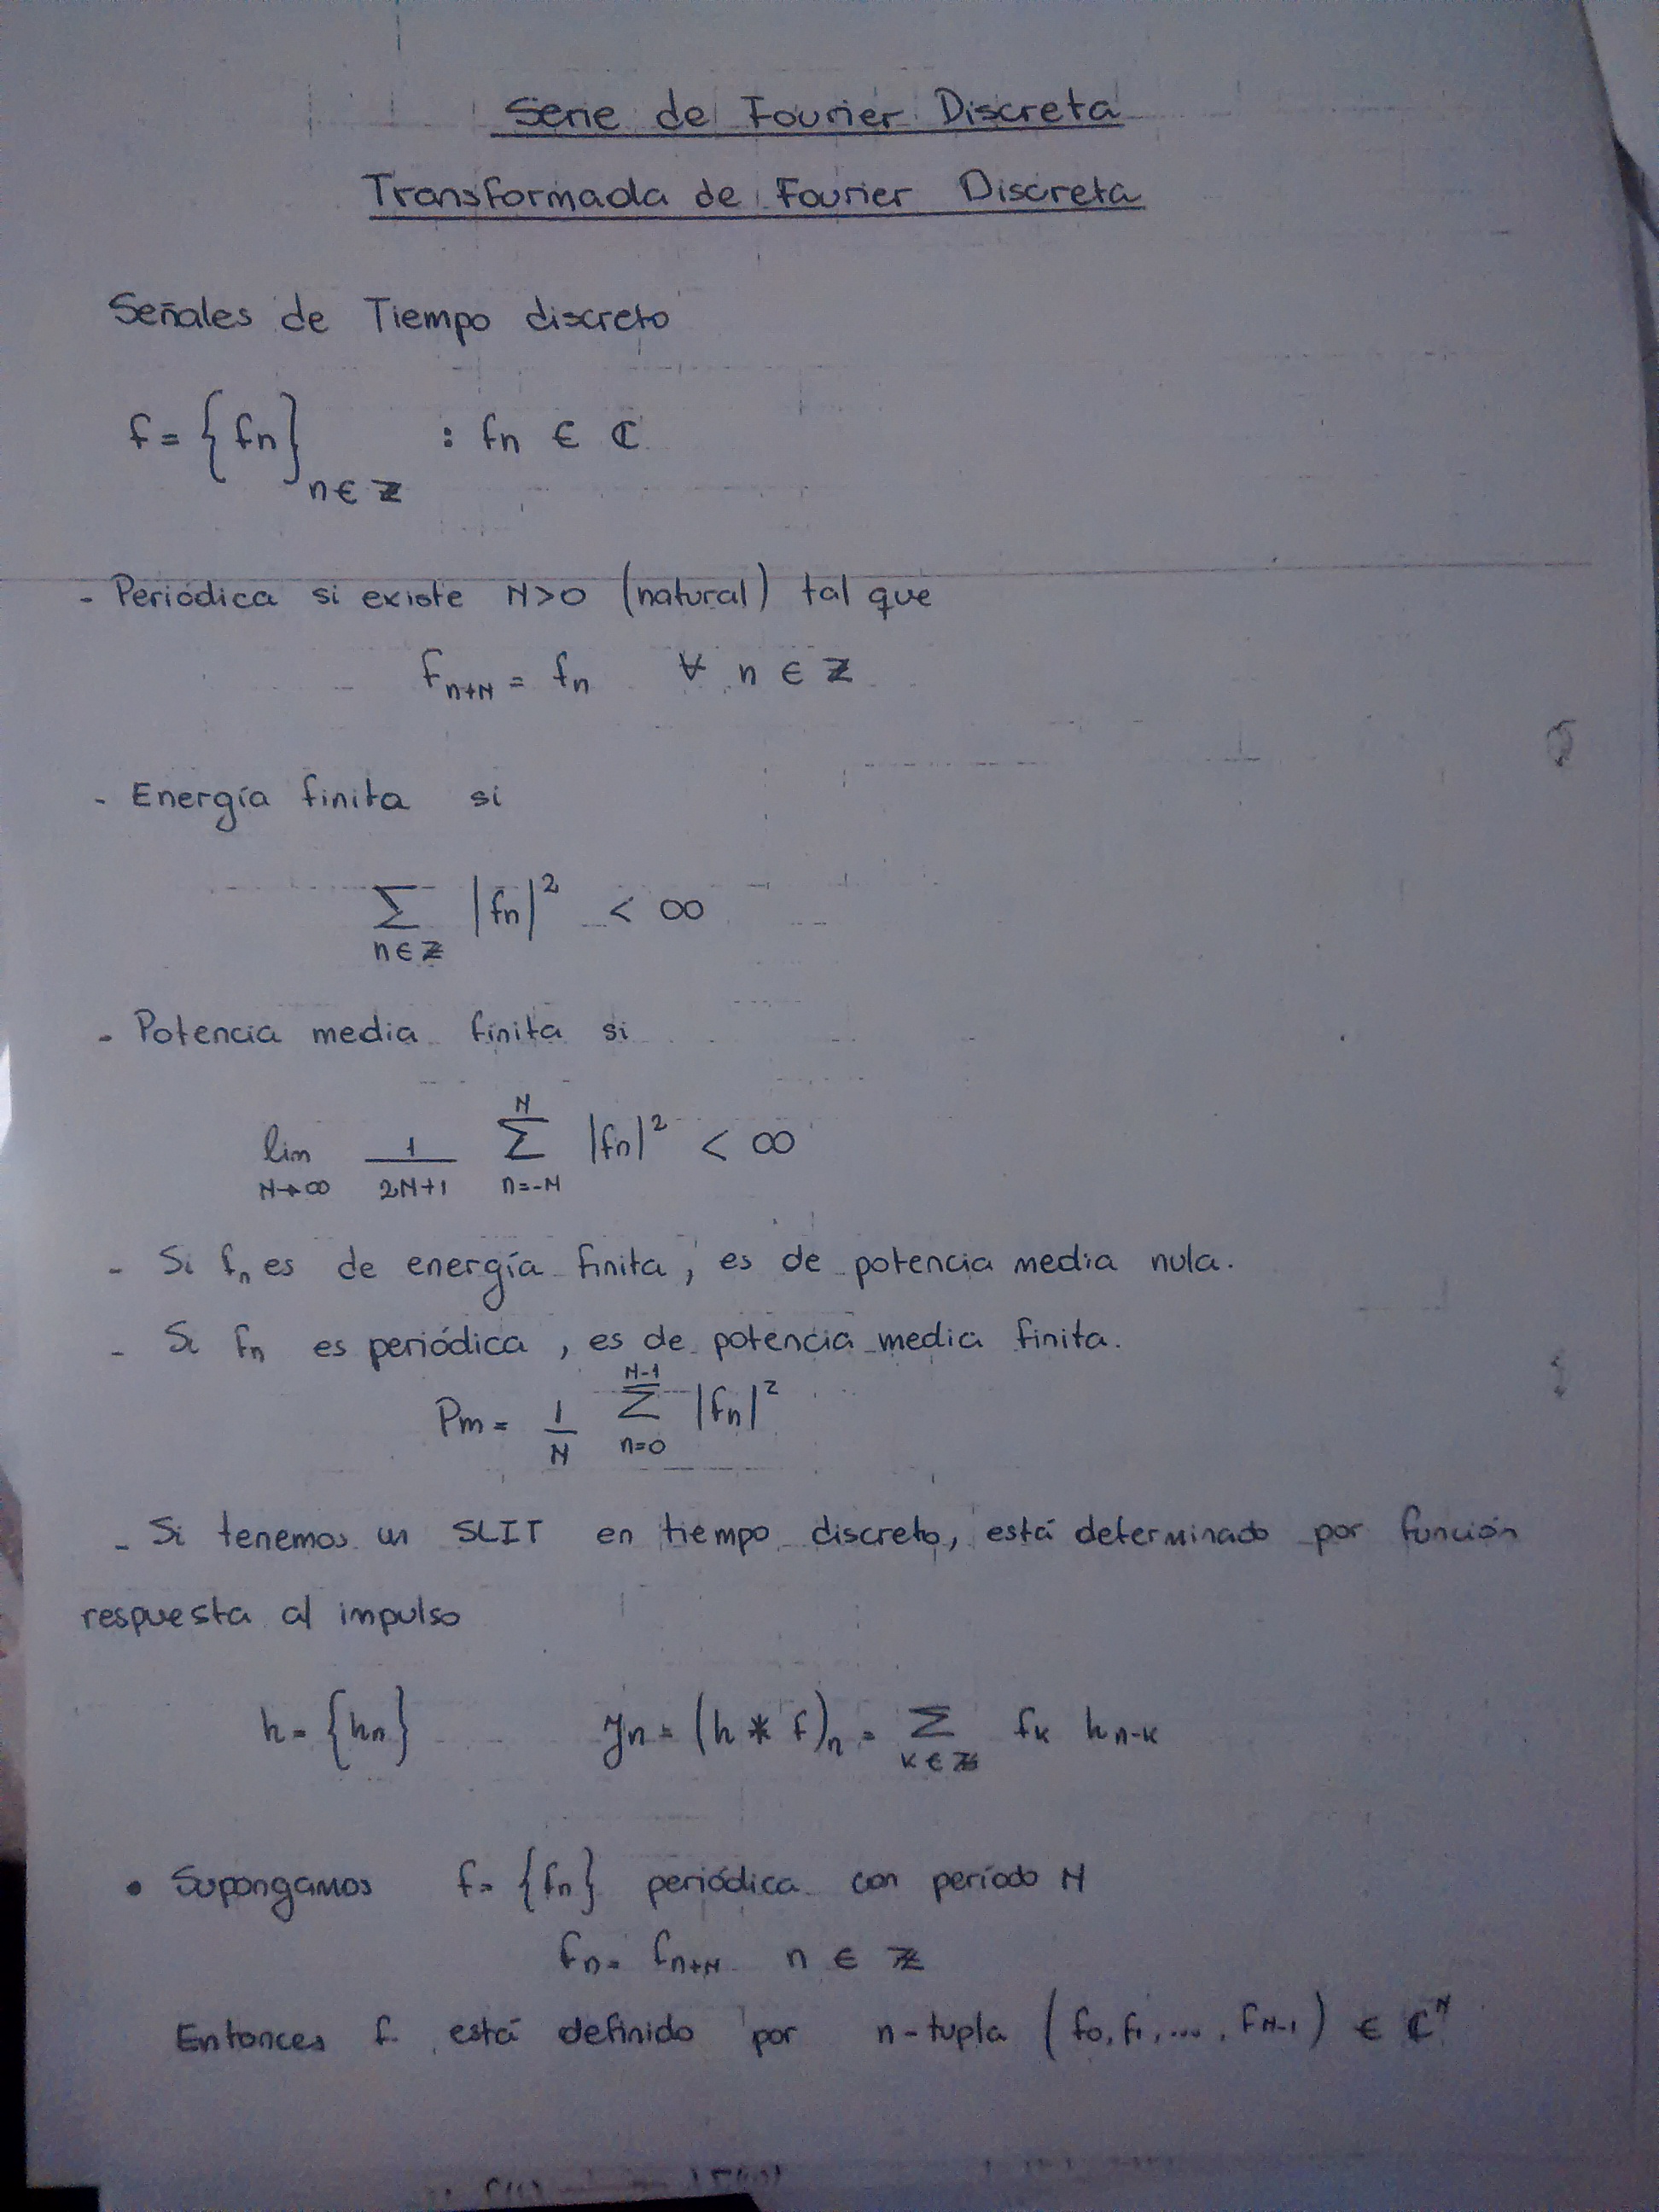 Serie de Fourier Discreta
Transformada de Fourier Discreta
Señales de Tiempo discreto
f = {fn} n∈ℤ : fn ∈ ℂ
- Periódica si existe N>0 (natural) tal que
f n+N = fn ∀ n ∈ ℤ
- Energía finita si
∑ n∈ℤ |fn|² < ∞
- Potencia media finita si
lim N→∞ 1/(2N+1) ∑ n=-N N |fn|² < ∞
- Si fn es de energía finita, es de potencia media nula.
- Si fn es periódica, es de potencia media finita.
Pm = 1/N ∑ n=0 N-1 |fn|²
- Si tenemos un SLIT en tiempo discreto, está determinado por función
respuesta al impulso
h = {hn} yn = (h * f)n = ∑ k∈ℤ fk hn-k
• Supongamos f = {fn} periódica con período N
fn = fn+N n ∈ ℤ
Entonces f está definido por n-tupla (f0, f1, ..., fN-1) ∈ ℂᴺ